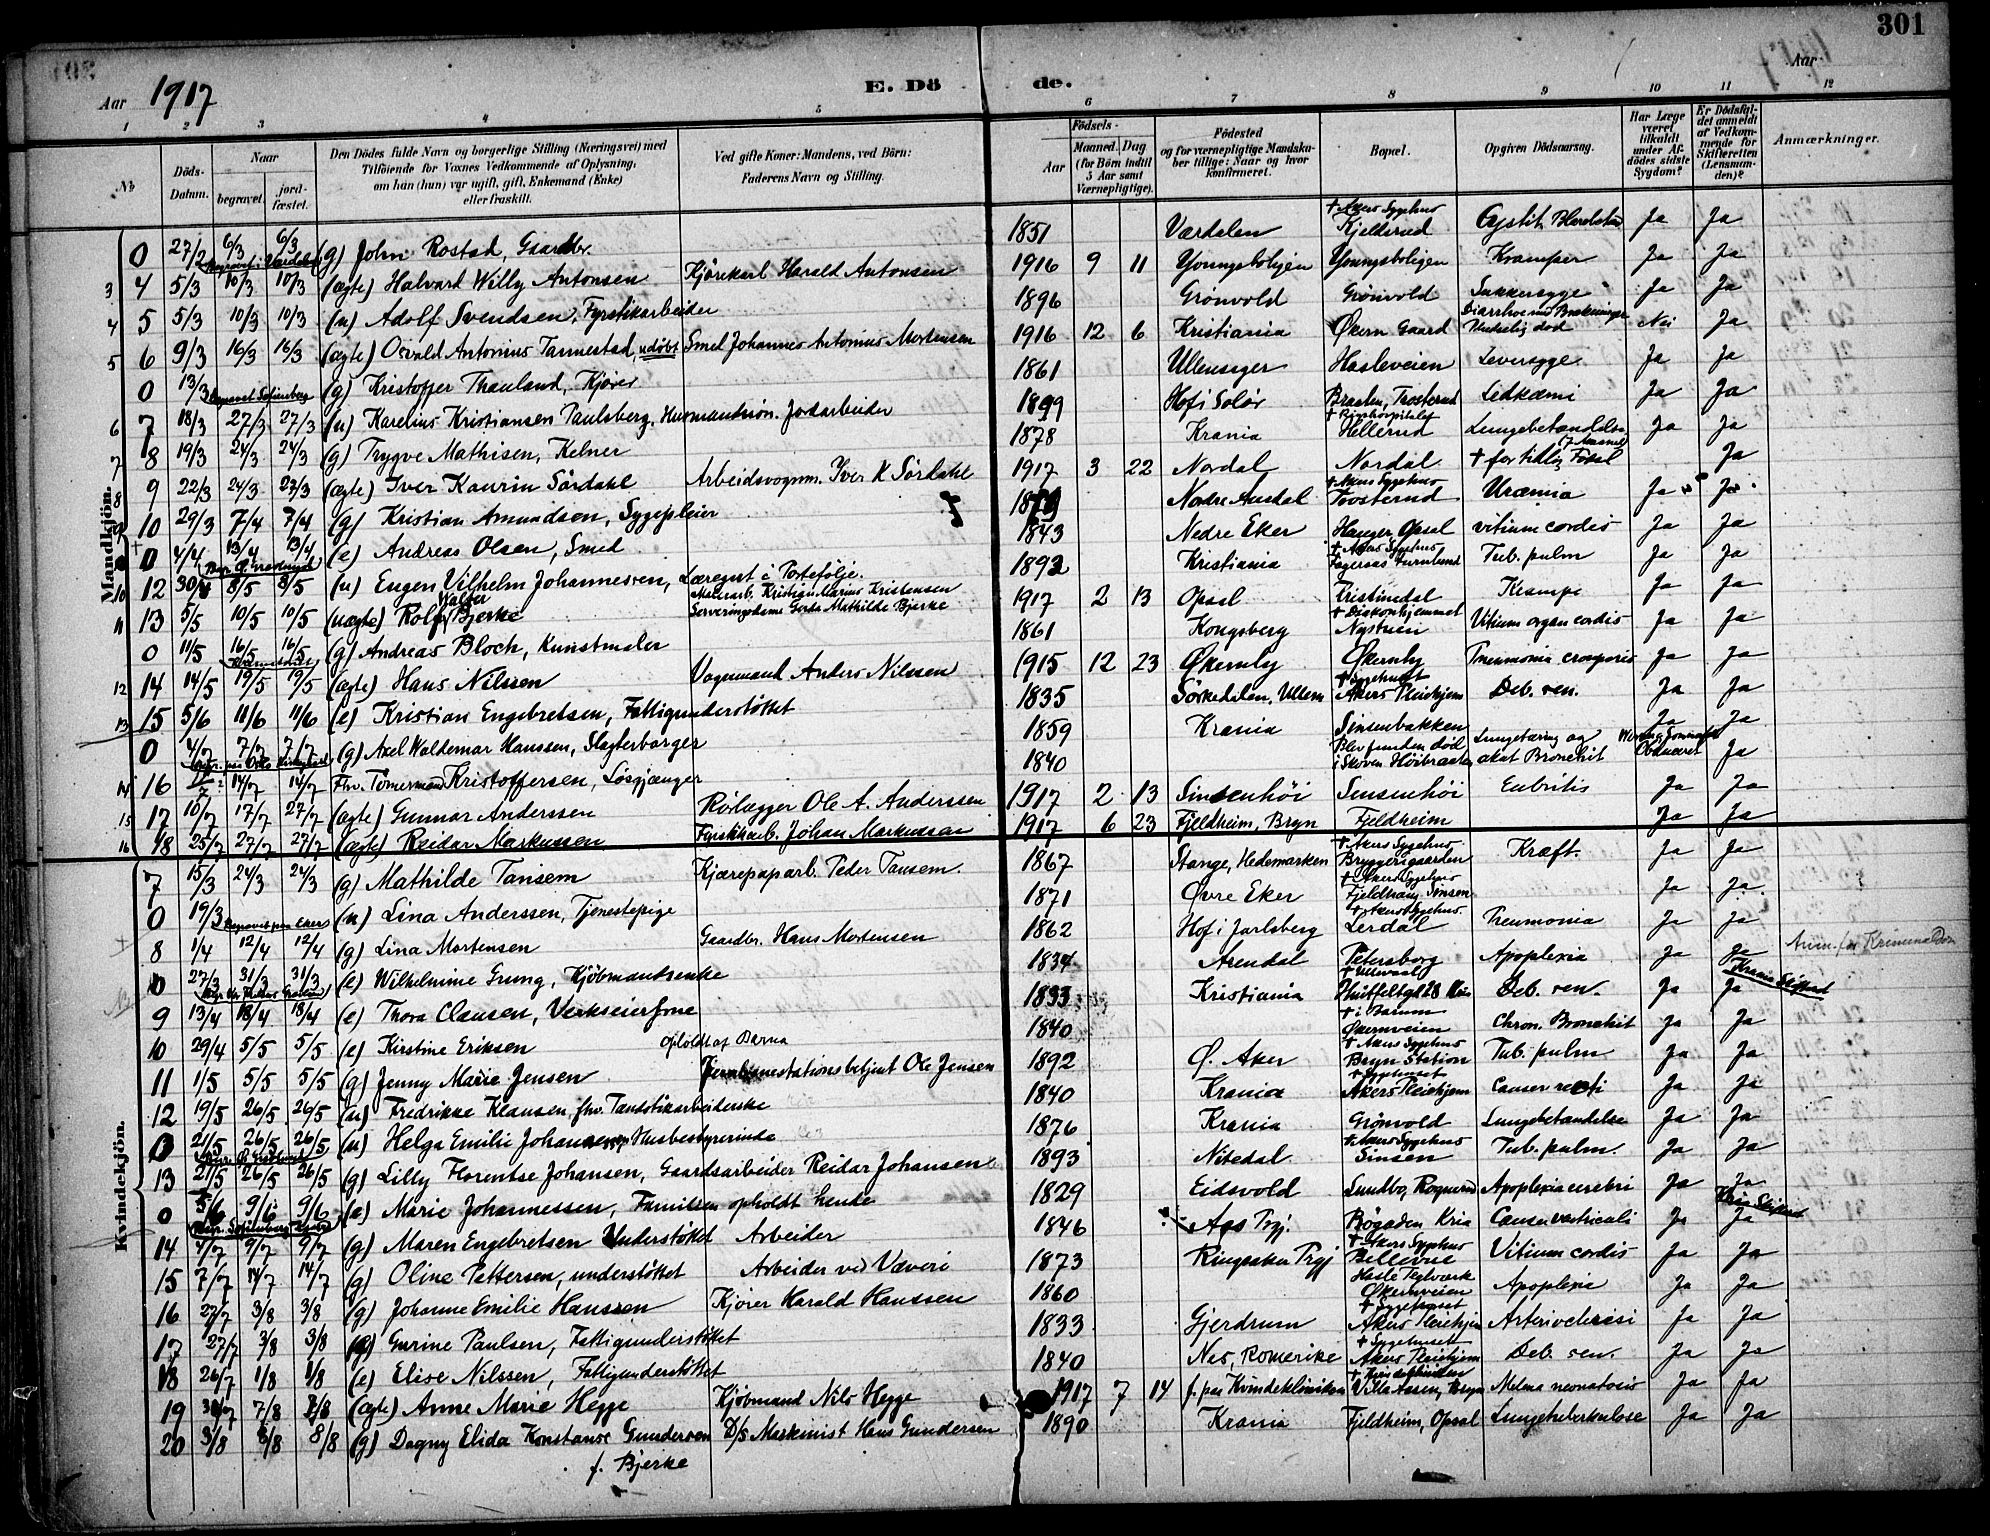 301
Aar 1917
E. Dö de.
Aar
1 2 3 4 5 6 7 8 9 10 11 12
No
Döds-Datum.
Naar begravet. jordfæstet.
Den Dödes fulde Navn og borgerlige Stilling (Næringsvei) med Tilföiende for Voxnes Vedkommende af Oplysning, om han (hun) var ugift, gift, Enkemand (Enke) eller fraskilt.
Ved gifte Koner: Mandens, ved Börn: Faderens Navn og Stilling.
Födsels- Aar Maaned. Dag (for Börn indtil 5 Aar samt Værnepligtige).
Födested og for værnepligtige Mandskaber tillige: Naar og hvor konfirmeret.
Bopæl.
Opgiven Dödsaarsag.
Har Læge været tilkaldt under Afdödes sidste Sygdom?
Er Dödsfaldet anmeldt af Vedkommende for Skifteretten (Lensmanden)?
Anmærkninger.
Mandkjön.
0 27/2 6/3 6/3 (g) John Rostad, Gaardbr. 1851 Værdalen + Akers Sygehus Kjelsrud Ja Ja
3 4 5/3 10/3 10/3 (ægte) Halvard Willy Antonsen Kjörekarl Harald Antonsen 1916 9 11 Youngsboligen Youngsboligen Kramper Ja Ja
4 5 5/3 10/3 10/3 (u) Adolf Svendsen, Fyrstikarbeider 1896 Grönvold Grönvold Sukkersyge Ja Ja
5 6 9/3 16/3 16/3 (ægte) Osvald Antonius Tannestad, udöbt Smed Johannes Antonius Mortensen 1916 12 6 Kristiania Økern Gaard Nei Ja
0 13/3 (g) Kristoffer Thauland, Kjörer 1861 Ullensager Hasleveien Leversyge Ja Ja
6 7 18/3 27/3 27/3 (u) Karelius Kristiansen Paulsberg, Husmandssön. Jordarbeider 1899 Hof i Solör Braaten, Trosterud Ledkæmi Ja Ja
7 8 19/3 24/3 24/3 (g) Trygve Mathisen, Kelner 1878 Krania + Rigshospitalet Hellerud Lungebetændelse Ja Ja
8 9 22/3 24/3 27/3 (ægte) Iver Kaurin Sördahl Arbeidsvognm. Iver K Sördahl 1917 3 22 Nordal Nordal + for tidlig Födsel Ja
9 10 29/3 7/4 7/4 (g) Kristian Amundsen, Sygepleier 1879 Nordre Aurdal + Akers Sygehus Trosterud Uræmia Ja Ja
0 4/4 13/4 13/4 (e) Andreas Olsen, Smed 1843 Nedre Eker Hauger Opsal vitium cordis Ja Ja
10 12 30/4 8/5 8/5 (u) Eugen Vilhelm Johannesen, Læregut i Portefölje. 1892 Kristiania + Akers Sygehus Tub. pulm Ja Ja
11 13 5/5 10/5 10/5 (uægte) Rolf Walter Bjerke Malerarb. Kristian Marius Kristensen Serveringsdame Gerda Mathilde Bjerke 1917 2 13 Opsal Kristindal Krampe Ja Ja
0 11/5 16/5 16/5 (g) Andreas Bloch, Kunstmaler 1861 Kongsberg + Diakonhjemmet Nystuen Vitium organ cordis Ja Ja
12 14 14/5 19/5 19/5 (ægte) Hans Nilssen Vognmand Anders Nilssen 1915 12 23 Økernby Økernby Pneumonia crouposis Ja Ja
13 15 5/6 11/6 11/6 (e) Kristian Engebretsen, Fattigunderstöttet 1835 Sörkedalen, Ullern + Sygehuset Akers Pleiehjem Deb. sen. Ja Ja
0 4/7 7/7 7/7 (g) Axel Waldemar Hanssen, Slagterborger 1859 Krania Sinsenbakken Lungetæring og Ja Ja
14 16 14/7 14/7 Fhv. Tömermand Kristoffersen, Lösgjænger 1840 Blev funden död i Skoven Höibraaten akut Bronchit Ja
15 17 10/7 17/7 27/7 (ægte) Gunnar Anderssen Rörlægger Ole A. Anderssen 1917 2 13 Sinsenhöi Sinsenhöi Enbritis Ja Ja
16 18 25/7 27/7 27/7 (ægte) Reidar Markussen Fyrstikarb. Johan Markussen 1917 6 23 Fjeldheim, Bryn Fjeldheim Ja Ja
Kvindekjön.
7 15/3 24/3 24/3 (g) Mathilde Tansem Kjærepaparb. Peder Tansem. 1867 Stange, Hedemarken + Akers Sygehus Bryggerigaarden Kræft. Ja Ja
0 19/3 (u) Lina Anderssen, Tjenestepige 1871 Övre Eker + Akers Sygehus Fjeldhaug Sinsen Ja Ja
8 1/4 12/4 12/4 (g) Lina Mortensen Gaardbr. Hans Mortensen 1862 Hof i Jarlsberg + Akers Sygehus. Lerdal Pneumonia Ja Ja
0 27/3 31/3 31/3 (e) Wilhelmine Grung, Kjöbmandsenke 1834 Arendal Petersborg Apoplexia Ja Ja
9 13/4 18/4 18/4 (e) Thora Clausen, Verkseierfrue 1833 Kristiania + Ullevaal Huitfeltsgt 28 Kria Deb. sen. Ja Ja
10 29/4 5/5 5/5 (e) Kirstine Eriksen Opholdt af Barna 1840 + i Bærum Økernveien Chron. Bronchit Ja Ja
11 1/5 5/5 5/5 (g) Jenny Marie Jensen Jernbanestationsbetjent Ole Jensen 1892 Ö. Aker + Akers Sygehus Bryn Station Tub. pulm Ja Ja
12 19/5 26/5 26/5 (u) Fredrikke Klausen, fhv. Tandstikarbeiderske 1840 Krania + Sygehuset Akers Pleiehjem Cancer recti Ja Ja
0 21/5 26/5 26/5 (u) Helga Emilie Johansen, Husbestyrerinde 1876 Krania Grönvold Lungebetændelse Ja Ja
13 21/5 26/5 26/5 (g) Lilly Florentse Johansen, Gaardsarbeider Reidar Johansen 1893 Nitedal + Akers Sygehus Sinsen Tub. pulm. Ja Ja
0 5/6 9/6 9/6 Marie Johannessen, Familien opholdt hende 1829 Eidsvold Lundbo, Rognerud Apoplexia cerebri Ja Ja
14 4/7 9/7 9/7 (g) Maren Engebretsen Understöttet Arbeider 1846 Aas Prgj. Bögaden Kria Cancer ventriculi Ja Ja
15 7/7 14/7 14/7 (g) Oline Pettersen, understöttet Arbeider ved Væveri 1873 Ringsaker Prgj + Akers Sygehus Bellevue Vitium cordis Ja Ja
16 27/7 3/8 3/8 (g) Johanne Emilie Hanssen Kjörer Harald Hanssen 1860 Hasle Teglværk Økernveien Apoplexia Ja Ja
17 27/7 3/8 3/8 Gurine Paulsen, Fattigunderstöttet 1833 Gjerdrum + Sygehuset Akers Pleiehjem Ja Ja
18 26/7 1/8 1/8 (e) Elise Nilssen, Fattigunderstöttet 1840 Nes, Romerike + Sygehuset Akers Pleiehjem Deb. sen. Ja Ja
19 7/8 7/8 (ægte) Anne Marie Hegge Kjöbmand Nils Hegge 1917 7 14 f. paa Kvindeklinikken + Kvindeklinikken Bryn Melena neonatosis Ja Ja
20 3/8 8/8 8/8 (g) Dagny Elida Konstanse Gundersen f. Bjerke D/S Maskinist Hans Gundersen 1890 Krania Fjeldheim, Opsal Lungetuberkulose Ja Ja